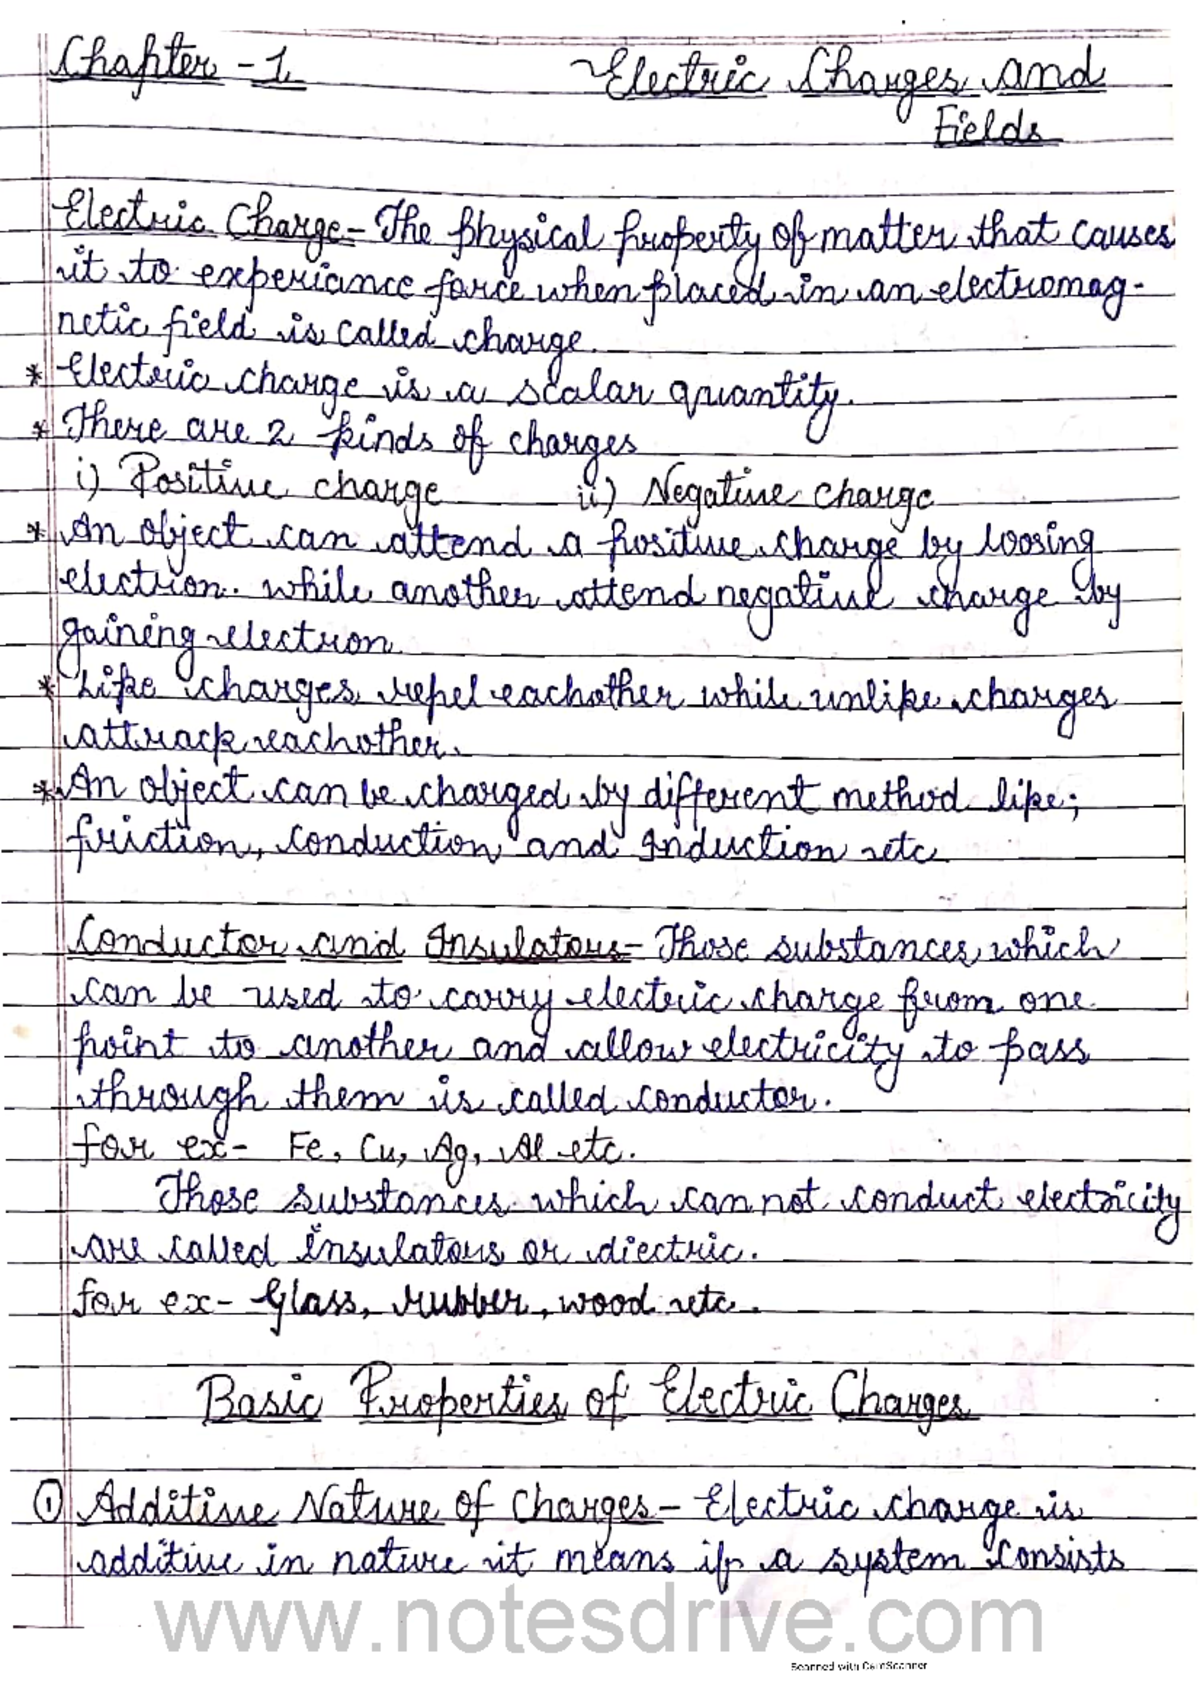 Chapter - 1
Electric Charges and
Fields
Electric Charge - The physical property of matter that causes
it to experiance force when placed in an electromag-
netic field is called charge.
* Electric charge is a scalar quantity.
* There are 2 kinds of charges
i) Positive charge ii) Negative charge
* An object can attend a positive charge by loosing
electron. while another attend negative charge by
gaining electron.
* Like charges repel eachother while unlike charges
attrack eachother.
* An object can be charged by different method like;
friction, conduction and Induction etc
Conductor and Insulators - Those substances which
can be used to carry electric charge from one
point to another and allow electricity to pass
through them is called conductor.
for ex- Fe, Cu, Ag, Al etc.
Those substances which can not conduct electricity
are called insulators or diectric.
for ex- Glass, rubber, wood etc.
Basic Properties of Electric Charges
① Additive Nature of Charges - Electric charge is
additive in nature it means if a system consists
www.notesdrive.com
Scanned with CamScanner